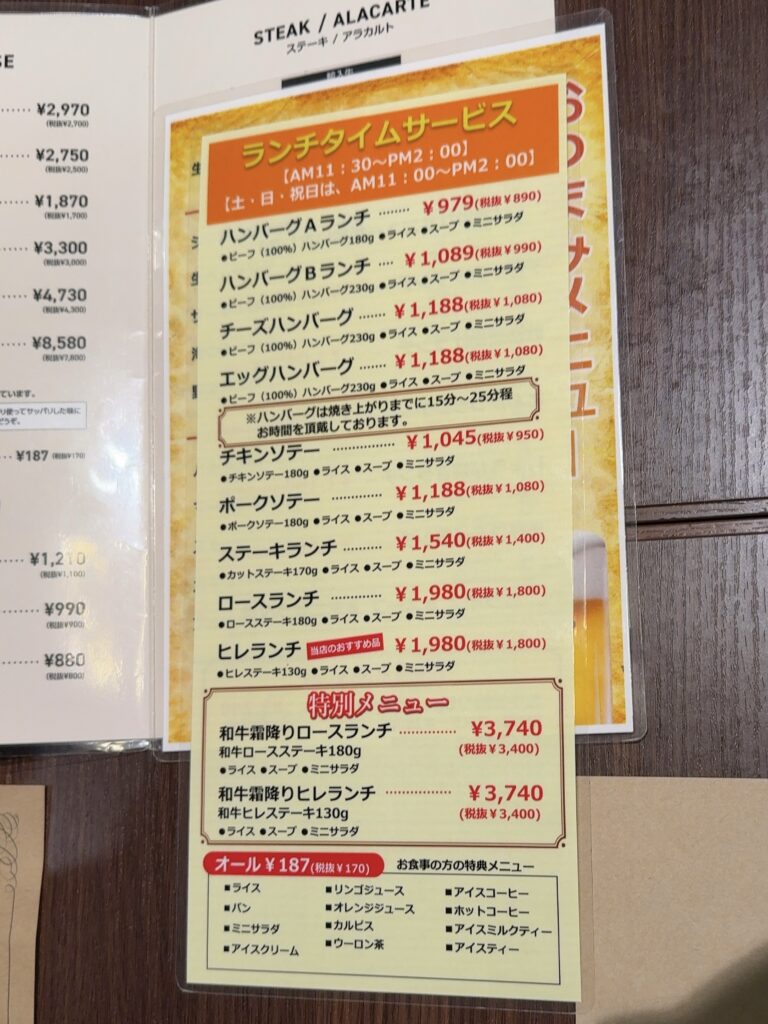 STEAK / ALACARTE
ステーキ / アラカルト
SE
¥2,970
(税抜¥2,700)
¥2,750
(税抜¥2,500)
¥1,870
(税抜¥1,700)
¥3,300
(税抜¥3,000)
¥4,730
(税抜¥4,300)
¥8,580
(税抜¥7,800)
ています。
り使ってサッパリした味に
どうぞ。
¥187 (税抜¥170)
¥1,210
(税抜¥1,100)
¥990
(税抜¥900)
¥880
(税抜¥800)
おつまみメニュー
ランチタイムサービス
【AM11：30～PM2：00】
【土・日・祝日は、AM11：00～PM2：00】
ハンバーグAランチ ········ ¥979(税抜¥890)
●ビーフ（100%）ハンバーグ180g ●ライス ●スープ ●ミニサラダ
ハンバーグBランチ ···· ¥1,089(税抜¥990)
●ビーフ（100%）ハンバーグ230g ●ライス ●スープ ●ミニサラダ
チーズハンバーグ ······· ¥1,188(税抜¥1,080)
●ビーフ（100%）ハンバーグ230g ●ライス ●スープ ●ミニサラダ
エッグハンバーグ ······· ¥1,188(税抜¥1,080)
●ビーフ（100%）ハンバーグ230g ●ライス ●スープ ●ミニサラダ
※ハンバーグは焼き上がりまでに15分～25分程
お時間を頂戴しております。
チキンソテー ············· ¥1,045(税抜¥950)
●チキンソテー180g ●ライス ●スープ ●ミニサラダ
ポークソテー ············· ¥1,188(税抜¥1,080)
●ポークソテー180g ●ライス ●スープ ●ミニサラダ
ステーキランチ ·········· ¥1,540(税抜¥1,400)
●カットステーキ170g ●ライス ●スープ ●ミニサラダ
ロースランチ ············· ¥1,980(税抜¥1,800)
●ロースステーキ180g ●ライス ●スープ ●ミニサラダ
ヒレランチ 当店のおすすめ品 ¥1,980(税抜¥1,800)
●ヒレステーキ130g ●ライス ●スープ ●ミニサラダ
特別メニュー
和牛霜降りロースランチ ·············· ¥3,740
和牛ロースステーキ180g (税抜¥3,400)
●ライス ●スープ ●ミニサラダ
和牛霜降りヒレランチ ················ ¥3,740
和牛ヒレステーキ130g (税抜¥3,400)
●ライス ●スープ ●ミニサラダ
オール¥187(税抜¥170) お食事の方の特典メニュー
■ライス ■リンゴジュース ■アイスコーヒー
■パン ■オレンジジュース ■ホットコーヒー
■ミニサラダ ■カルピス ■アイスミルクティー
■アイスクリーム ■ウーロン茶 ■アイスティー